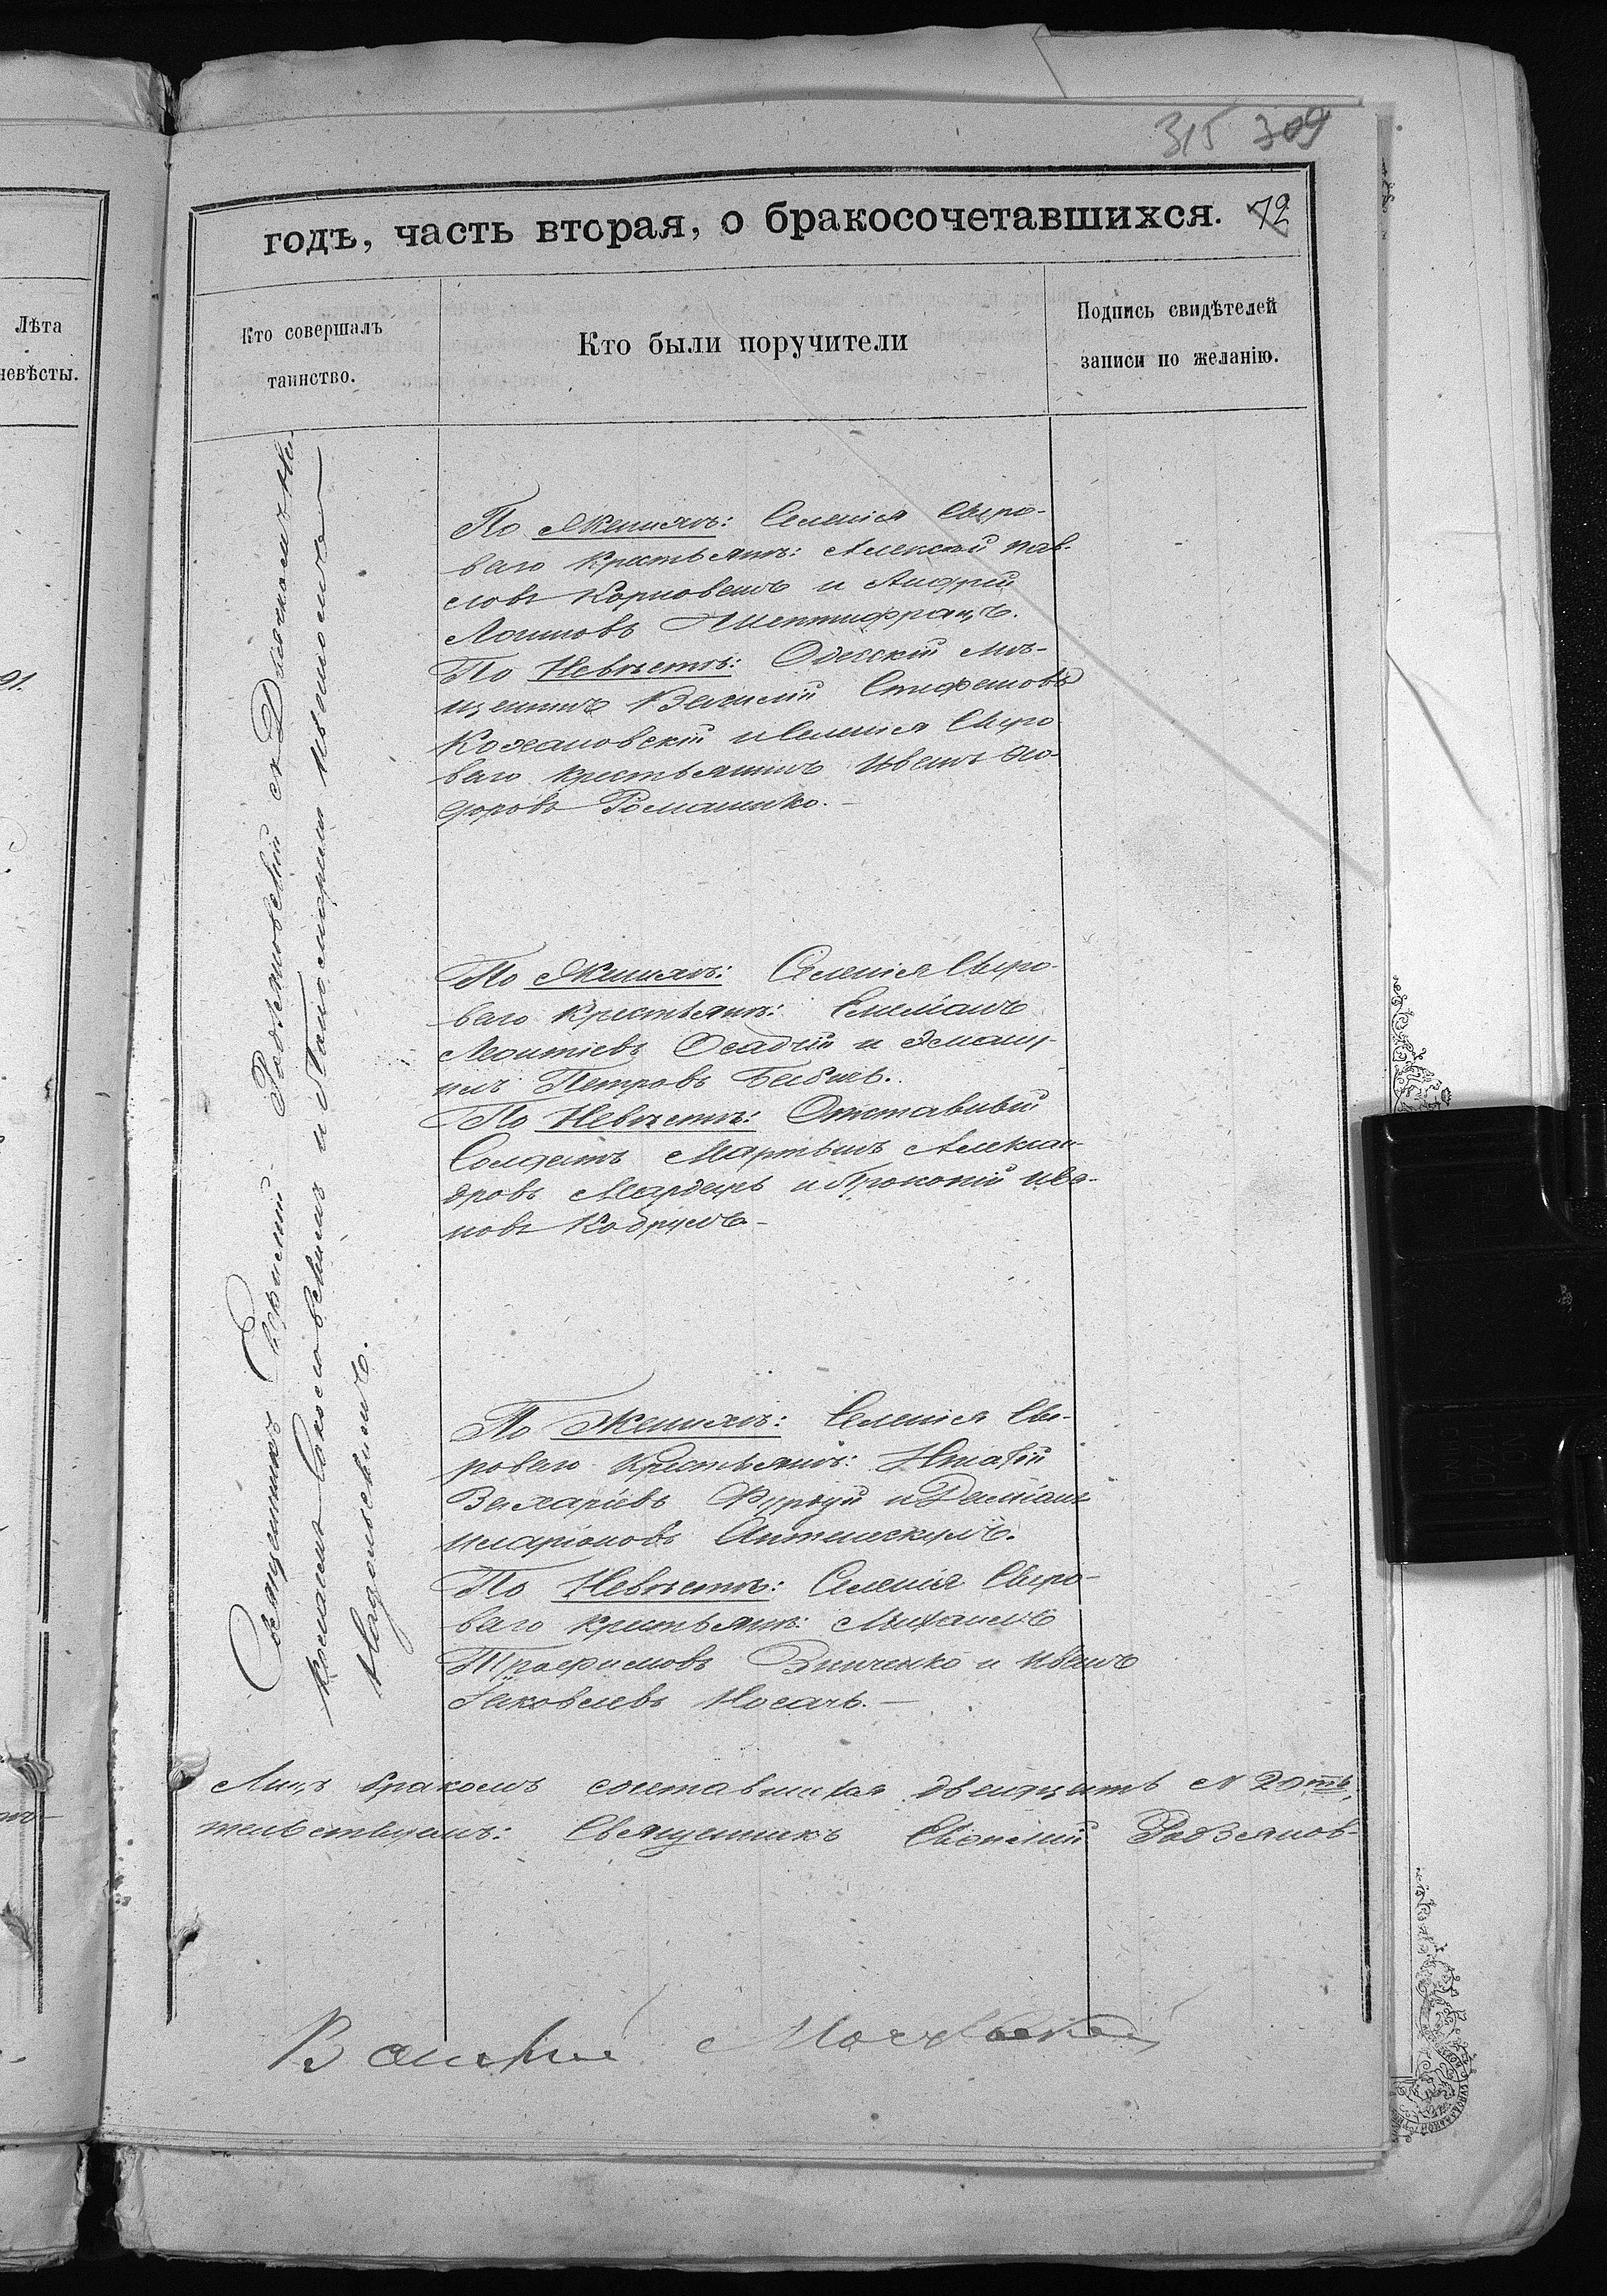 315 309
годъ, часть вторая, о бракосочетавшихся. 72
Лѣта
невѣсты.
Кто совершалъ
таинство.
Кто были поручители
Подпись свидѣтелей
записи по желанію.
91.
Священникъ Евфимій Радзяновскій съ Діакономъ Ни-
Соколовскимъ и Пономаремъ Иваномъ
По Женихѣ: Селенія Сыро-
ваго крестьяне: Алексѣй Пав-
ловъ Корновенъ и Андрей
Логиновъ
По Невѣстѣ: Одесскій мѣ-
щанинъ Василій Стефановъ
Кохановскій и Селенія Сыро
ваго крестьянинъ Иванъ Ѳео-
доровъ Романенко.
По Женихѣ: Селенія Сыро-
ваго крестьяне: Емеліанъ
Леонтіевъ Осадчій и
Петровъ Бабичъ.
По Невѣстѣ: Отставный
Солдатъ Мартынъ Алексан-
дровъ Мардарь и Прокопій Ива-
новъ Кодрулъ
По Женихѣ: Селенія Сы-
роваго крестьяне: Игнатій
Захаріевъ и Даміанъ
Иларіоновъ
По Невѣстѣ: Селенія Сыро-
ваго крестьяне: Михаилъ
Трофимовъ Зинченко и Иванъ
Іаковлевъ Носачъ.
Лицъ бракомъ двадцать N 20ть.
тельствуемъ: Священникъ Евфимій Радзянов-